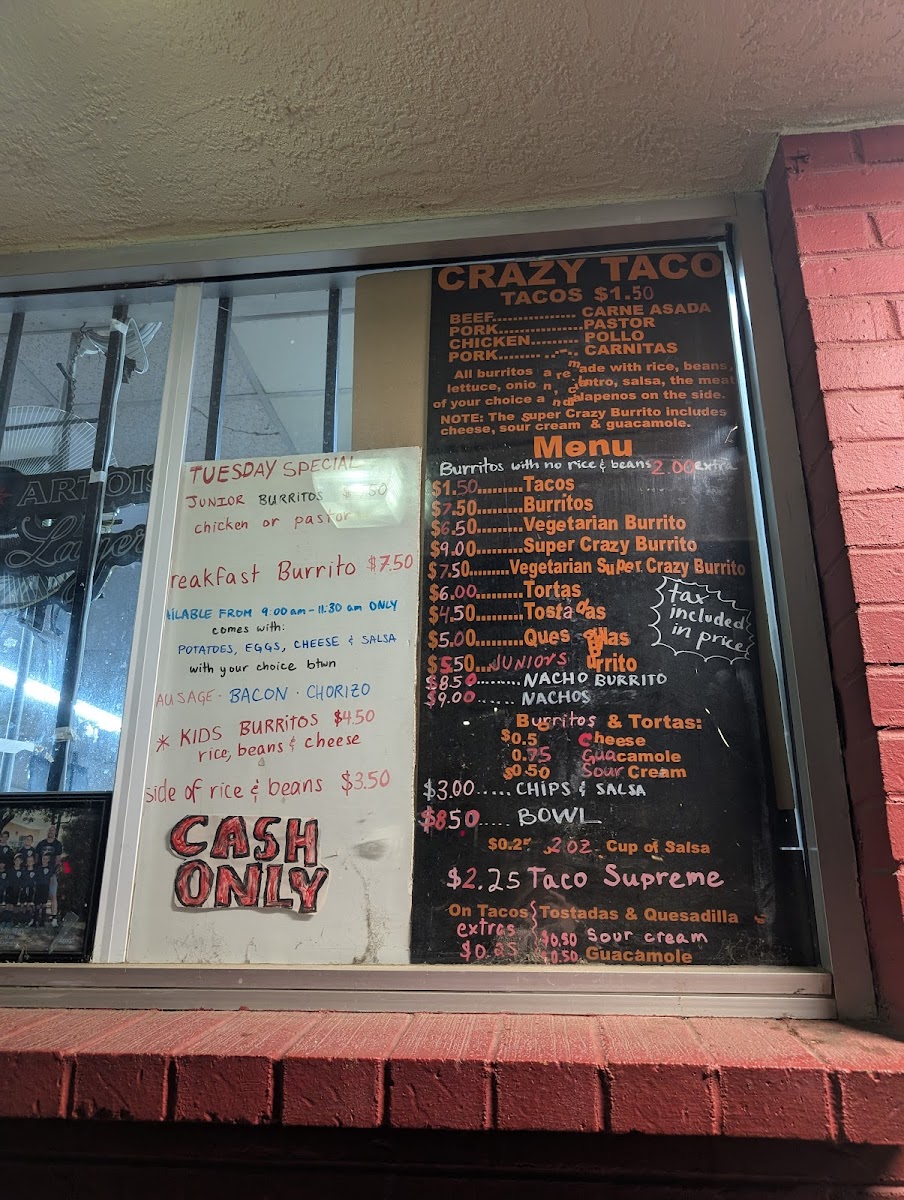 ARTOIS
Lager
TUESDAY SPECIAL
JUNIOR BURRITOS
chicken or pastor
reakfast Burrito $7.50
ILABLE FROM 9:00 am - 11:30 am ONLY
comes with:
POTATOES, EGGS, CHEESE & SALSA
with your choice btwn
AUSAGE · BACON · CHORIZO
* KIDS BURRITOS $4.50
rice, beans & cheese
side of rice & beans $3.50
CASH
ONLY
CRAZY TACO
TACOS $1.50
BEEF................ CARNE ASADA
PORK................ PASTOR
CHICKEN......... POLLO
PORK........ ..... CARNITAS
All burritos are made with rice, beans,
lettuce, onion, salsa, the meat
of your choice and jalapenos on the side.
NOTE: The super Crazy Burrito includes
cheese, sour cream & guacamole.
Menu
Burritos with no rice & beans 2.00 extra
$1.50.........Tacos
$7.50.........Burritos
$6.50.........Vegetarian Burrito
$9.00.........Super Crazy Burrito
$7.50........Vegetarian Super Crazy Burrito
$6.00.........Tortas
$4.50.........Tostadas
$5.00.........Ques
$5.50...JUNIORS Burrito
tax
included
in price
$8.50.........NACHO BURRITO
$9.00...... NACHOS
Burritos & Tortas:
$0.5 Cheese
0.75 Guacamole
$0.50 Sour Cream
$3.00..... CHIPS & SALSA
$8.50..... BOWL
2 oz Cup of Salsa
$2.25 Taco Supreme
On Tacos Tostadas & Quesadilla s
extras $0.50 Sour cream
$0.50 Guacamole